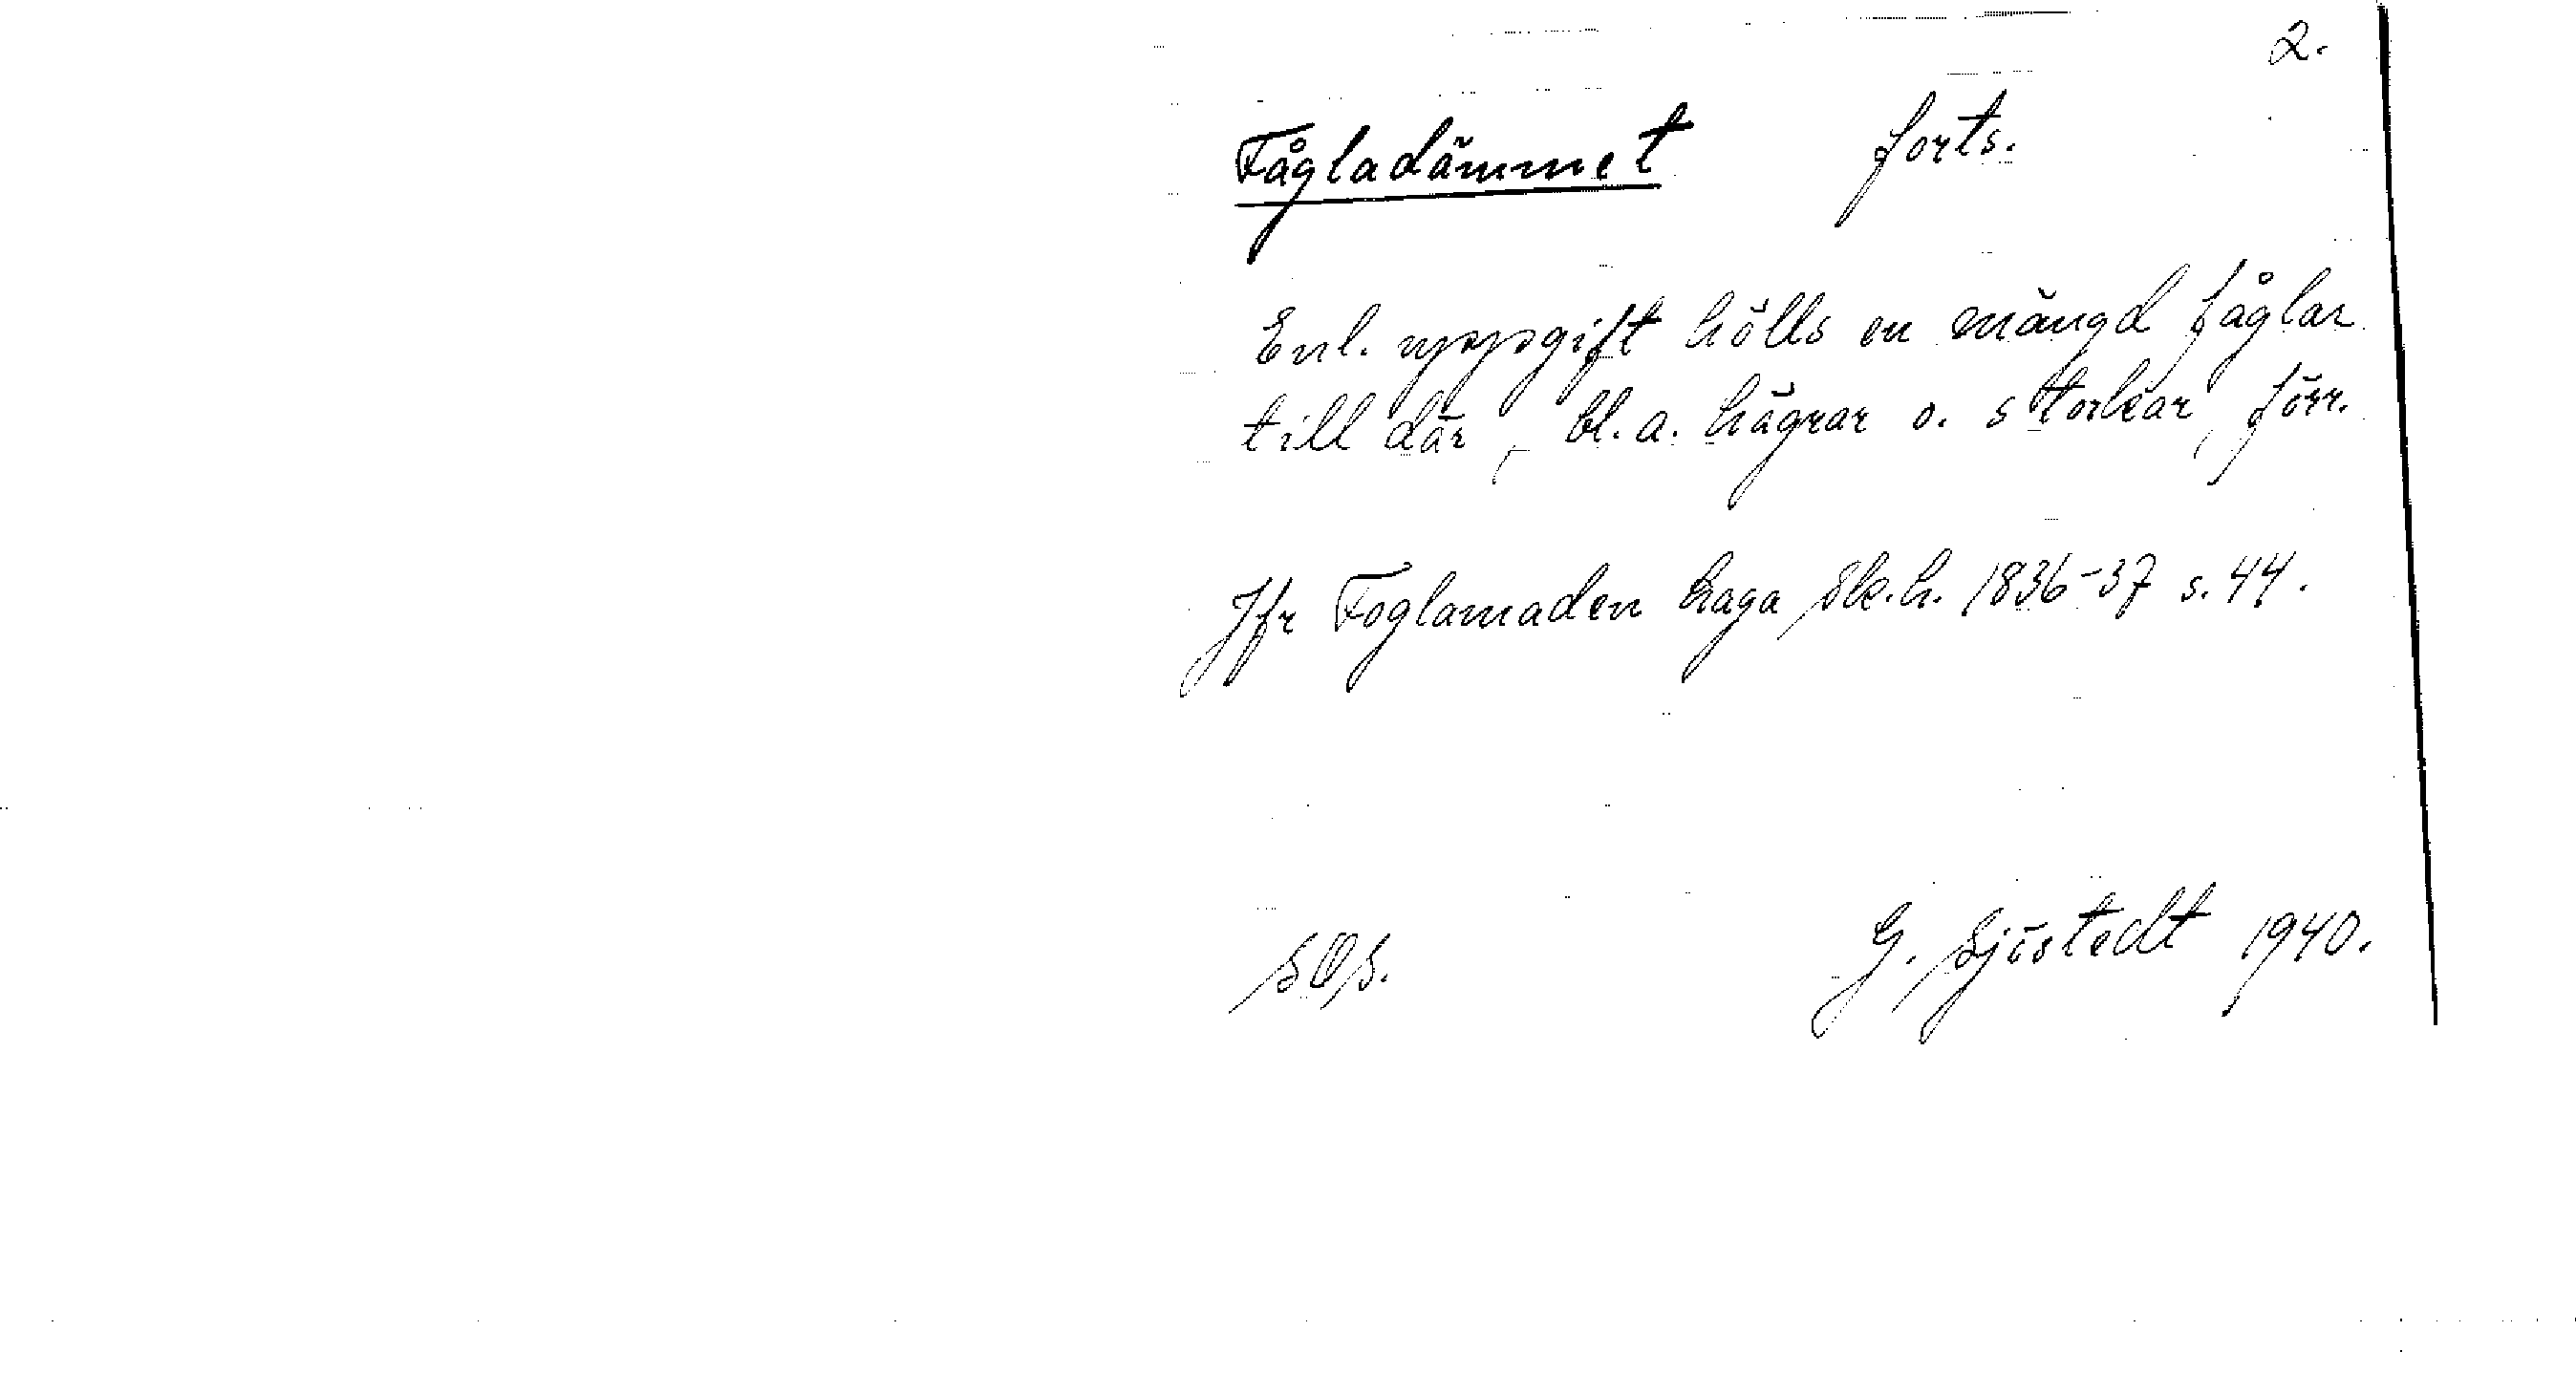 2.
Fågladämmet forts.
Enl. uppgift hölls en mängd fåglar
till där, bl.a. hägrar o. storkar, förr.
Jfr Foglamaden haga Sk.h. 1836-37 s. 44.
SOS. G. Sjöstedt 1940.